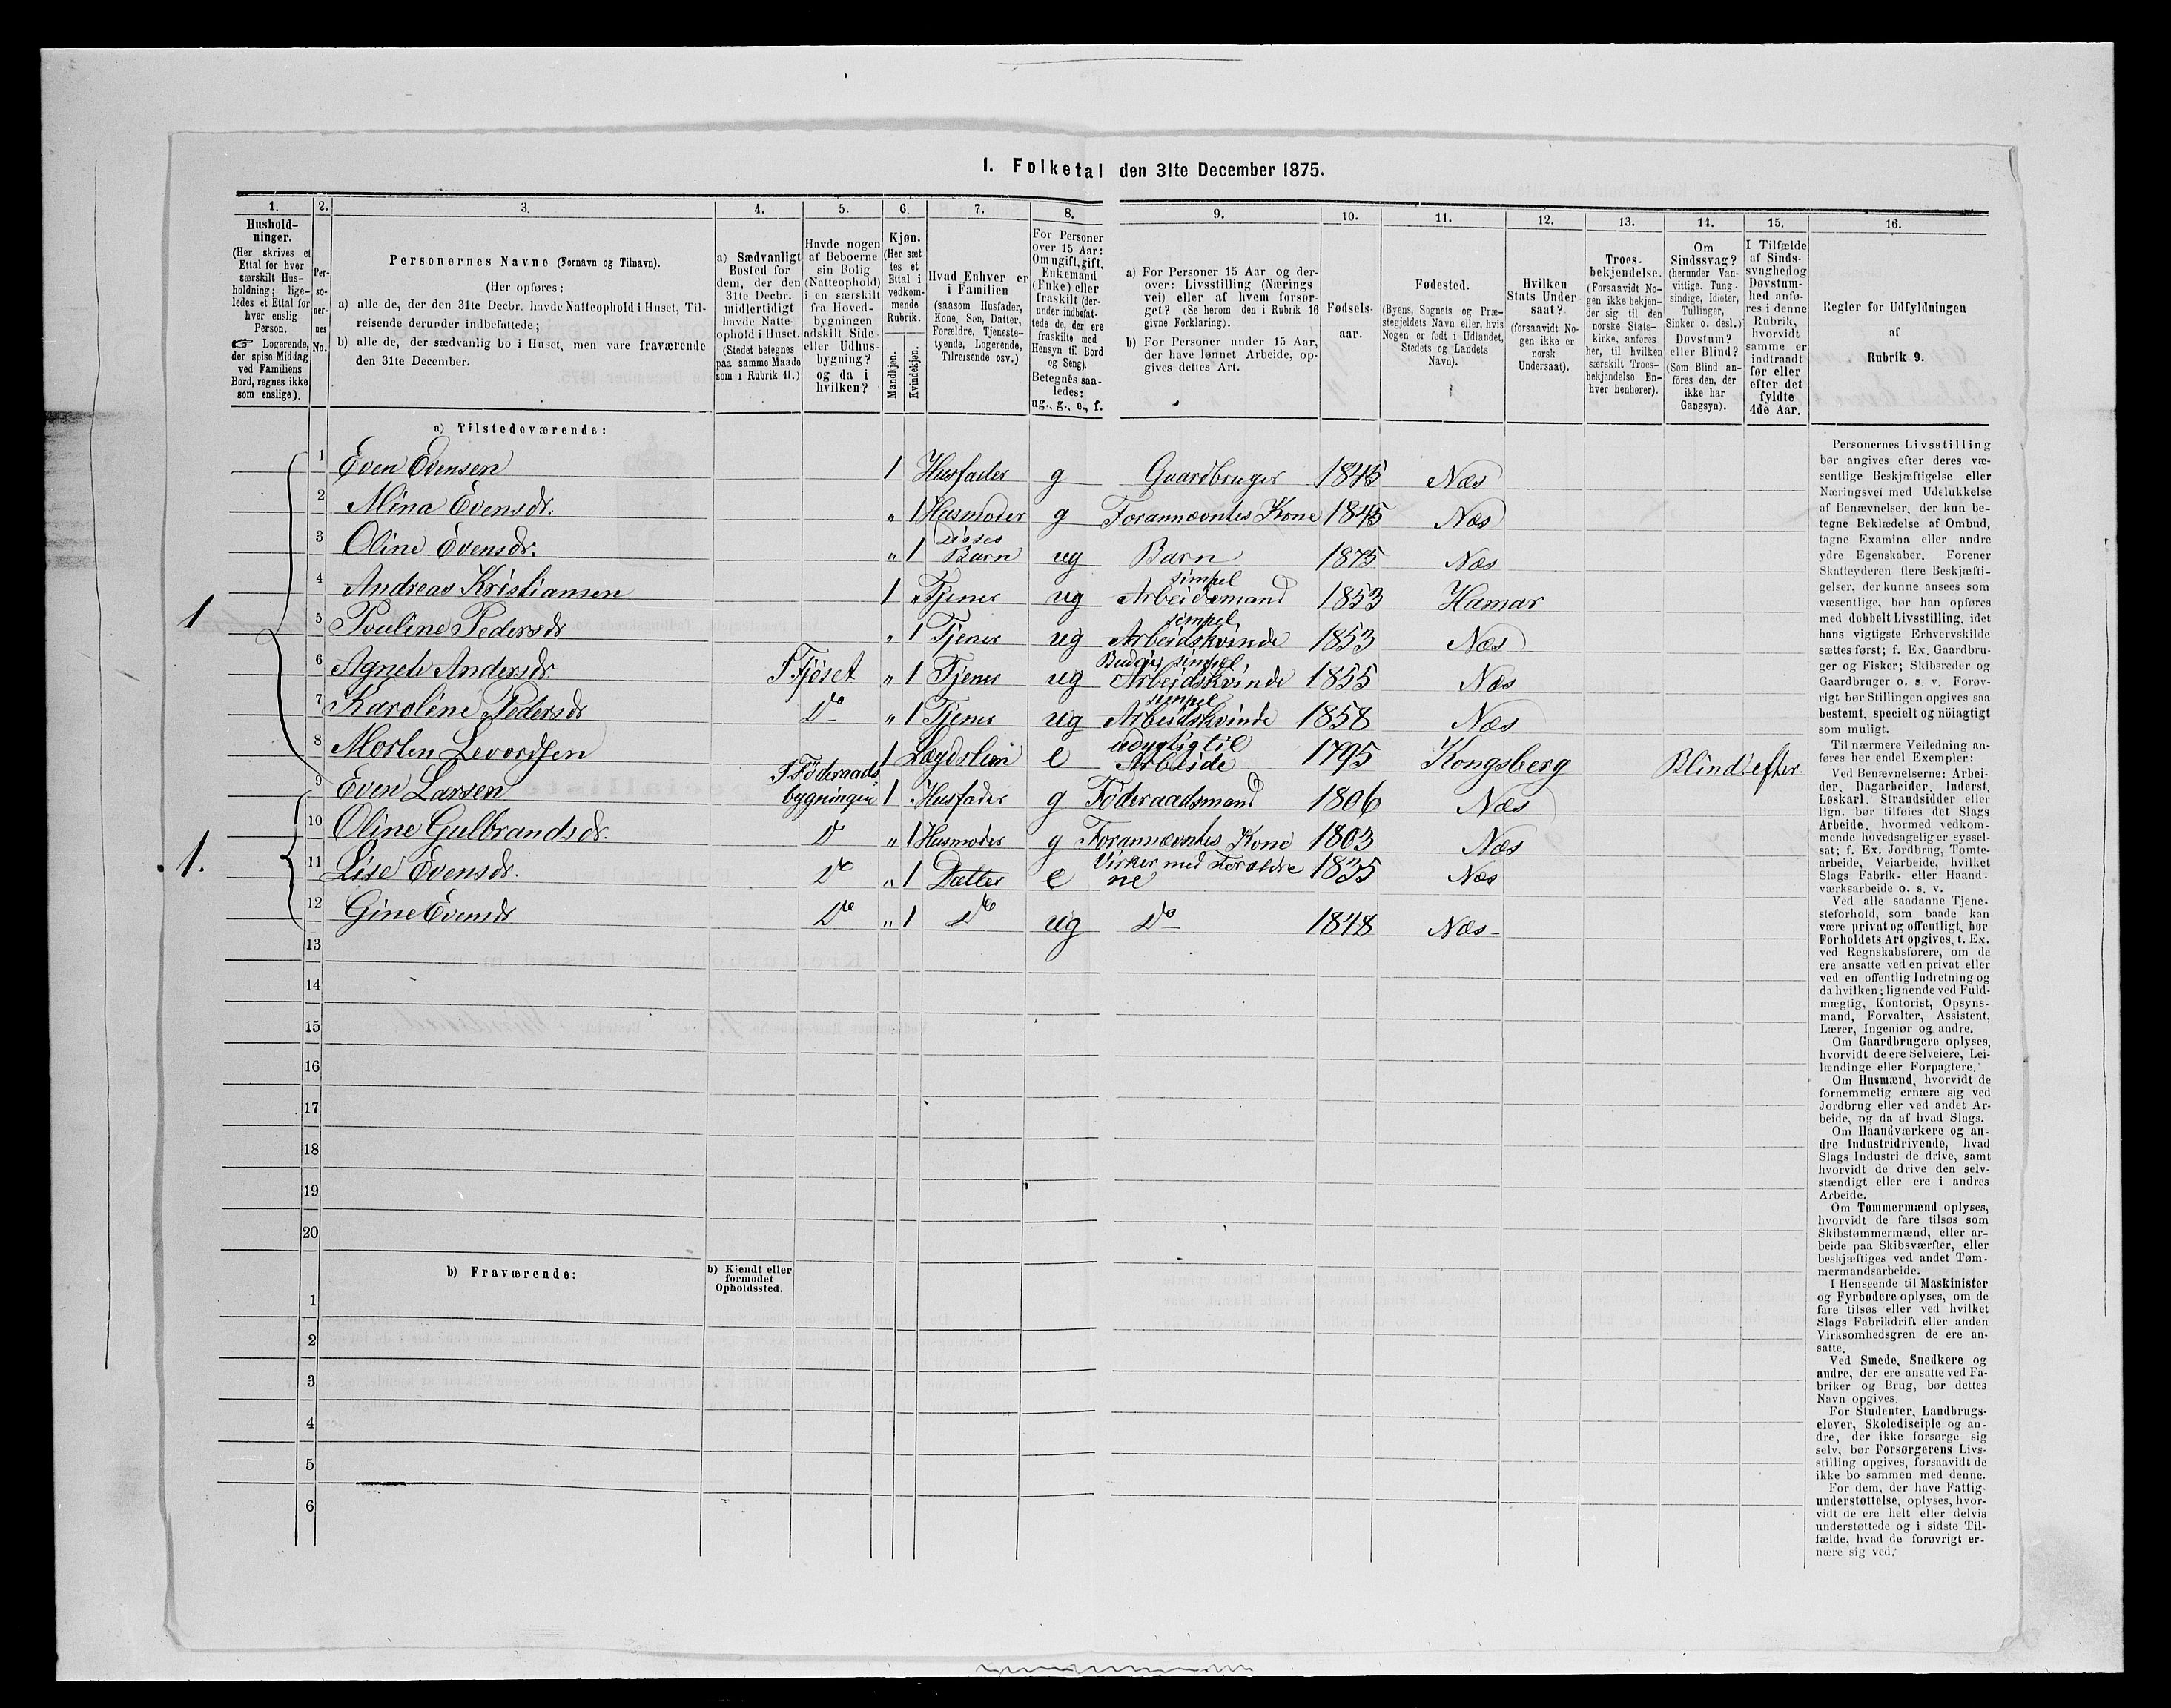 I. Folketal den 31te December 1875.
1. 2. 3. 4. 5. 6. 7. 8. 9. 10. 11. 12. 13. 14. 15. 16.
Hushold-
ninger.
(Her skrives et
Ettal for hver
særskilt Hus-
holdning; lige-
ledes et Ettal for
hver enslig
Person.
☞ Logerende,
der spise Middag
ved Familiens
Bord, regnes ikke
som enslige).
Per-
so-
ner-
nes
No.
Personernes Navne (Fornavn og Tilnavn).
(Her opføres:
a) alle de, der den 31te Decbr. havde Natteophold i Huset, Til-
reisende derunder indbefattede;
b) alle de, der sædvanlig bo i Huset, men vare fraværende
den 31te December.
a) Sædvanligt
Bosted for
dem, der den
31te Decbr.
midlertidigt
havde Natte-
ophold i Huset.
(Stedet betegnes
paa samme Maade
som i Rubrik 11.)
Havde nogen
af Beboerne
sin Bolig
(Natteophold)
i en særskilt
fra Hoved-
bygningen
adskilt Side-
eller Udhus-
bygning?
og da i
hvilken?
Kjøn.
(Her sæt
tes et
Ettal i
vedkom-
mende
Rubrik.
Mandkjøn.
Kvindekjøn.
Hvad Enhver er
i Familien
(saasom Husfader,
Kone, Søn, Datter,
Forældre, Tjeneste-
tyende, Logerende,
Tilreisende osv.)
For Personer
over 15 Aar:
Om ugift, gift,
Enkemand
(Enke) eller
fraskilt (der-
under indbefat-
tede de, der ere
fraskilte med
Hensyn til Bord
og Seng).
Betegnes saa-
ledes:
ug., g., e., f.
a) For Personer 15 Aar og der-
over: Livsstilling (Nærings
vei) eller af hvem forsør-
get? (Se herom den i Rubrik 16
givne Forklaring).
b) For Personer under 15 Aar,
der have lønnet Arbeide, op-
gives dettes Art.
Fødsels-
aar.
Fødested.
(Byens, Sognets og Præ-
stegjeldets Navn eller, hvis
Nogen er født i Udlandet,
Stedets og Landets
Navn).
Hvilken
Stats Under-
saat?
(forsaavidt No-
gen ikke er
norsk
Undersaat).
Troes-
bekjendelse.
(Forsaavidt No-
gen ikke bekjen-
der sig til den
norske Stats-
kirke, anføres
her, til hvilken
særskilt Troes-
bekjendelse En-
hver henhører).
Om
Sindssvag?
(herunder Van-
vittige, Tung-
sindige, Idioter,
Tullinger,
Sinker o. desl.)
Døvstum?
eller Blind?
(Som Blind an-
føres den, der
ikke har
Gangsyn).
I Tilfælde
af Sinds-
svaghed og
Døvstum-
hed anfø-
res i denne
Rubrik,
hvorvidt
samme er
indtraadt
før eller
efter det
fyldte
4de Aar.
Regler for Udfyldningen
af
Rubrik 9.
a) Tilstedeværende:
1 Even Evensen 1 Husfader g Gaardbruger 1845 Næs
2 Mina Evensdr. „ 1 Husmoder g Forannævntes Kone 1845 Næs
3 Oline Evensdr. „ 1 Disses Barn ug Barn 1875 Næs
4 Andreas Kristiansen 1 „ Tjener ug simpel Arbeidsmand 1853 Hamar
1
5 Pouline Pedersdr „ 1 Tjener ug simpel Arbeidskvinde 1853 Næs
6 Agnete Andersdr. I Fjöset „ 1 Tjener ug Budeie simpel Arbeidskvinde 1855 Næs
7 Karoline Pedersdr Do „ 1 Tjener ug simpel Arbeidskvinde 1858 Næs
8 Morten Levordsen 1 Lægdslem e udygtig til Arbeide 1795 Kongsberg Blind efter.
9 Even Larsen I Föderaads bygningen 1 Husfader g Föderaadsmand 1806 Næs
10 Oline Gulbrandsdr. Do „ 1 Husmoder g Forannævntes Kone 1803 Næs
1.
11 Lise Evensdr. Do „ 1 Datter e Virker med Forældre ne 1835 Næs
12 Gine Evensdr Do „ 1 Do ug Do 1848 Næs
13
14
15
16
17
18
19
20
b) Fraværende:
b) Kjendt eller
formodet
Opholdssted.
1
2
3
4
5
6
Personernes Livsstilling
bør angives efter deres væ-
sentlige Beskjæftigelse eller
Næringsvei med Udelukkelse
af Benævnelser, der kun be-
tegne Beklædelse af Ombud,
tagne Examina eller andre
ydre Egenskaber. Forener
Skatteyderen flere Beskjæfti-
gelser, der kunne ansees som
væsentlige, bør han opføres
med dobbelt Livsstilling, idet
hans vigtigste Erhvervskilde
sættes først; f. Ex. Gaardbru-
ger og Fisker; Skibsreder og
Gaardbruger o. s. v. Forøv-
rigt bør Stillingen opgives saa
bestemt, specielt og nöiagtigt
som muligt.
Til nærmere Veiledning an-
føres her endel Exempler:
Ved Benævnelserne: Arbei-
der, Dagarbeider, Inderst,
Løskarl, Strandsidder eller
lign. bør tilføies det Slags
Arbeide, hvormed vedkom-
mende hovedsagelig er syssel-
sat; f. Ex. Jordbrug, Tomte-
arbeide, Veiarbeide, hvilket
Slags Fabrik- eller Haand-
værksarbeide o. s. v.
Ved alle saadanne Tjene-
steforhold, som baade kan
være privat og offentligt, bør
Forholdets Art opgives, t. Ex.
ved Regnskabsførere, om de
ere ansatte ved en privat eller
ved en offentlig Indretning og
da hvilken; lignende ved Fuld-
mægtig, Kontorist, Opsyns-
mand, Forvalter, Assistent,
Lærer, Ingeniør og andre.
Om Gaardbrugere oplyses,
hvorvidt de ere Selveiere, Lei-
lændinge eller Forpagtere.
Om Husmænd, hvorvidt de
fornemmelig ernære sig ved
Jordbrug eller ved andet Ar-
beide, og da af hvad Slags.
Om Haandværkere og an-
dre Industridrivende, hvad
Slags Industri de drive, samt
hvorvidt de drive den selv-
stændigt eller ere i andres
Arbeide.
Om Tømmermænd oplyses,
hvorvidt de fare tilsøs som
Skibstømmermænd, eller ar-
beide paa Skibsværfter, eller
beskjæftiges ved andet Tøm-
mermandsarbeide.
I Henseende til Maskinister
og Fyrbødere oplyses, om de
fare tilsøs eller ved hvilket
Slags Fabrikdrift eller anden
Virksomhedsgren de ere an-
satte.
Ved Smede, Snedkere og
andre, der ere ansatte ved Fa-
briker og Brug, bør dettes
Navn opgives.
For Studenter, Landbrugs-
elever, Skoledisciple og an-
dre, der ikke forsørge sig
selv, bør Forsørgerens Livs-
stilling opgives, forsaavidt de
ikke bo sammen med denne.
For dem, der have Fattig-
understøttelse, oplyses, hvor-
vidt de ere helt eller delvis
understøttede og i sidste Til-
fælde, hvad de forøvrigt er-
nære sig ved.